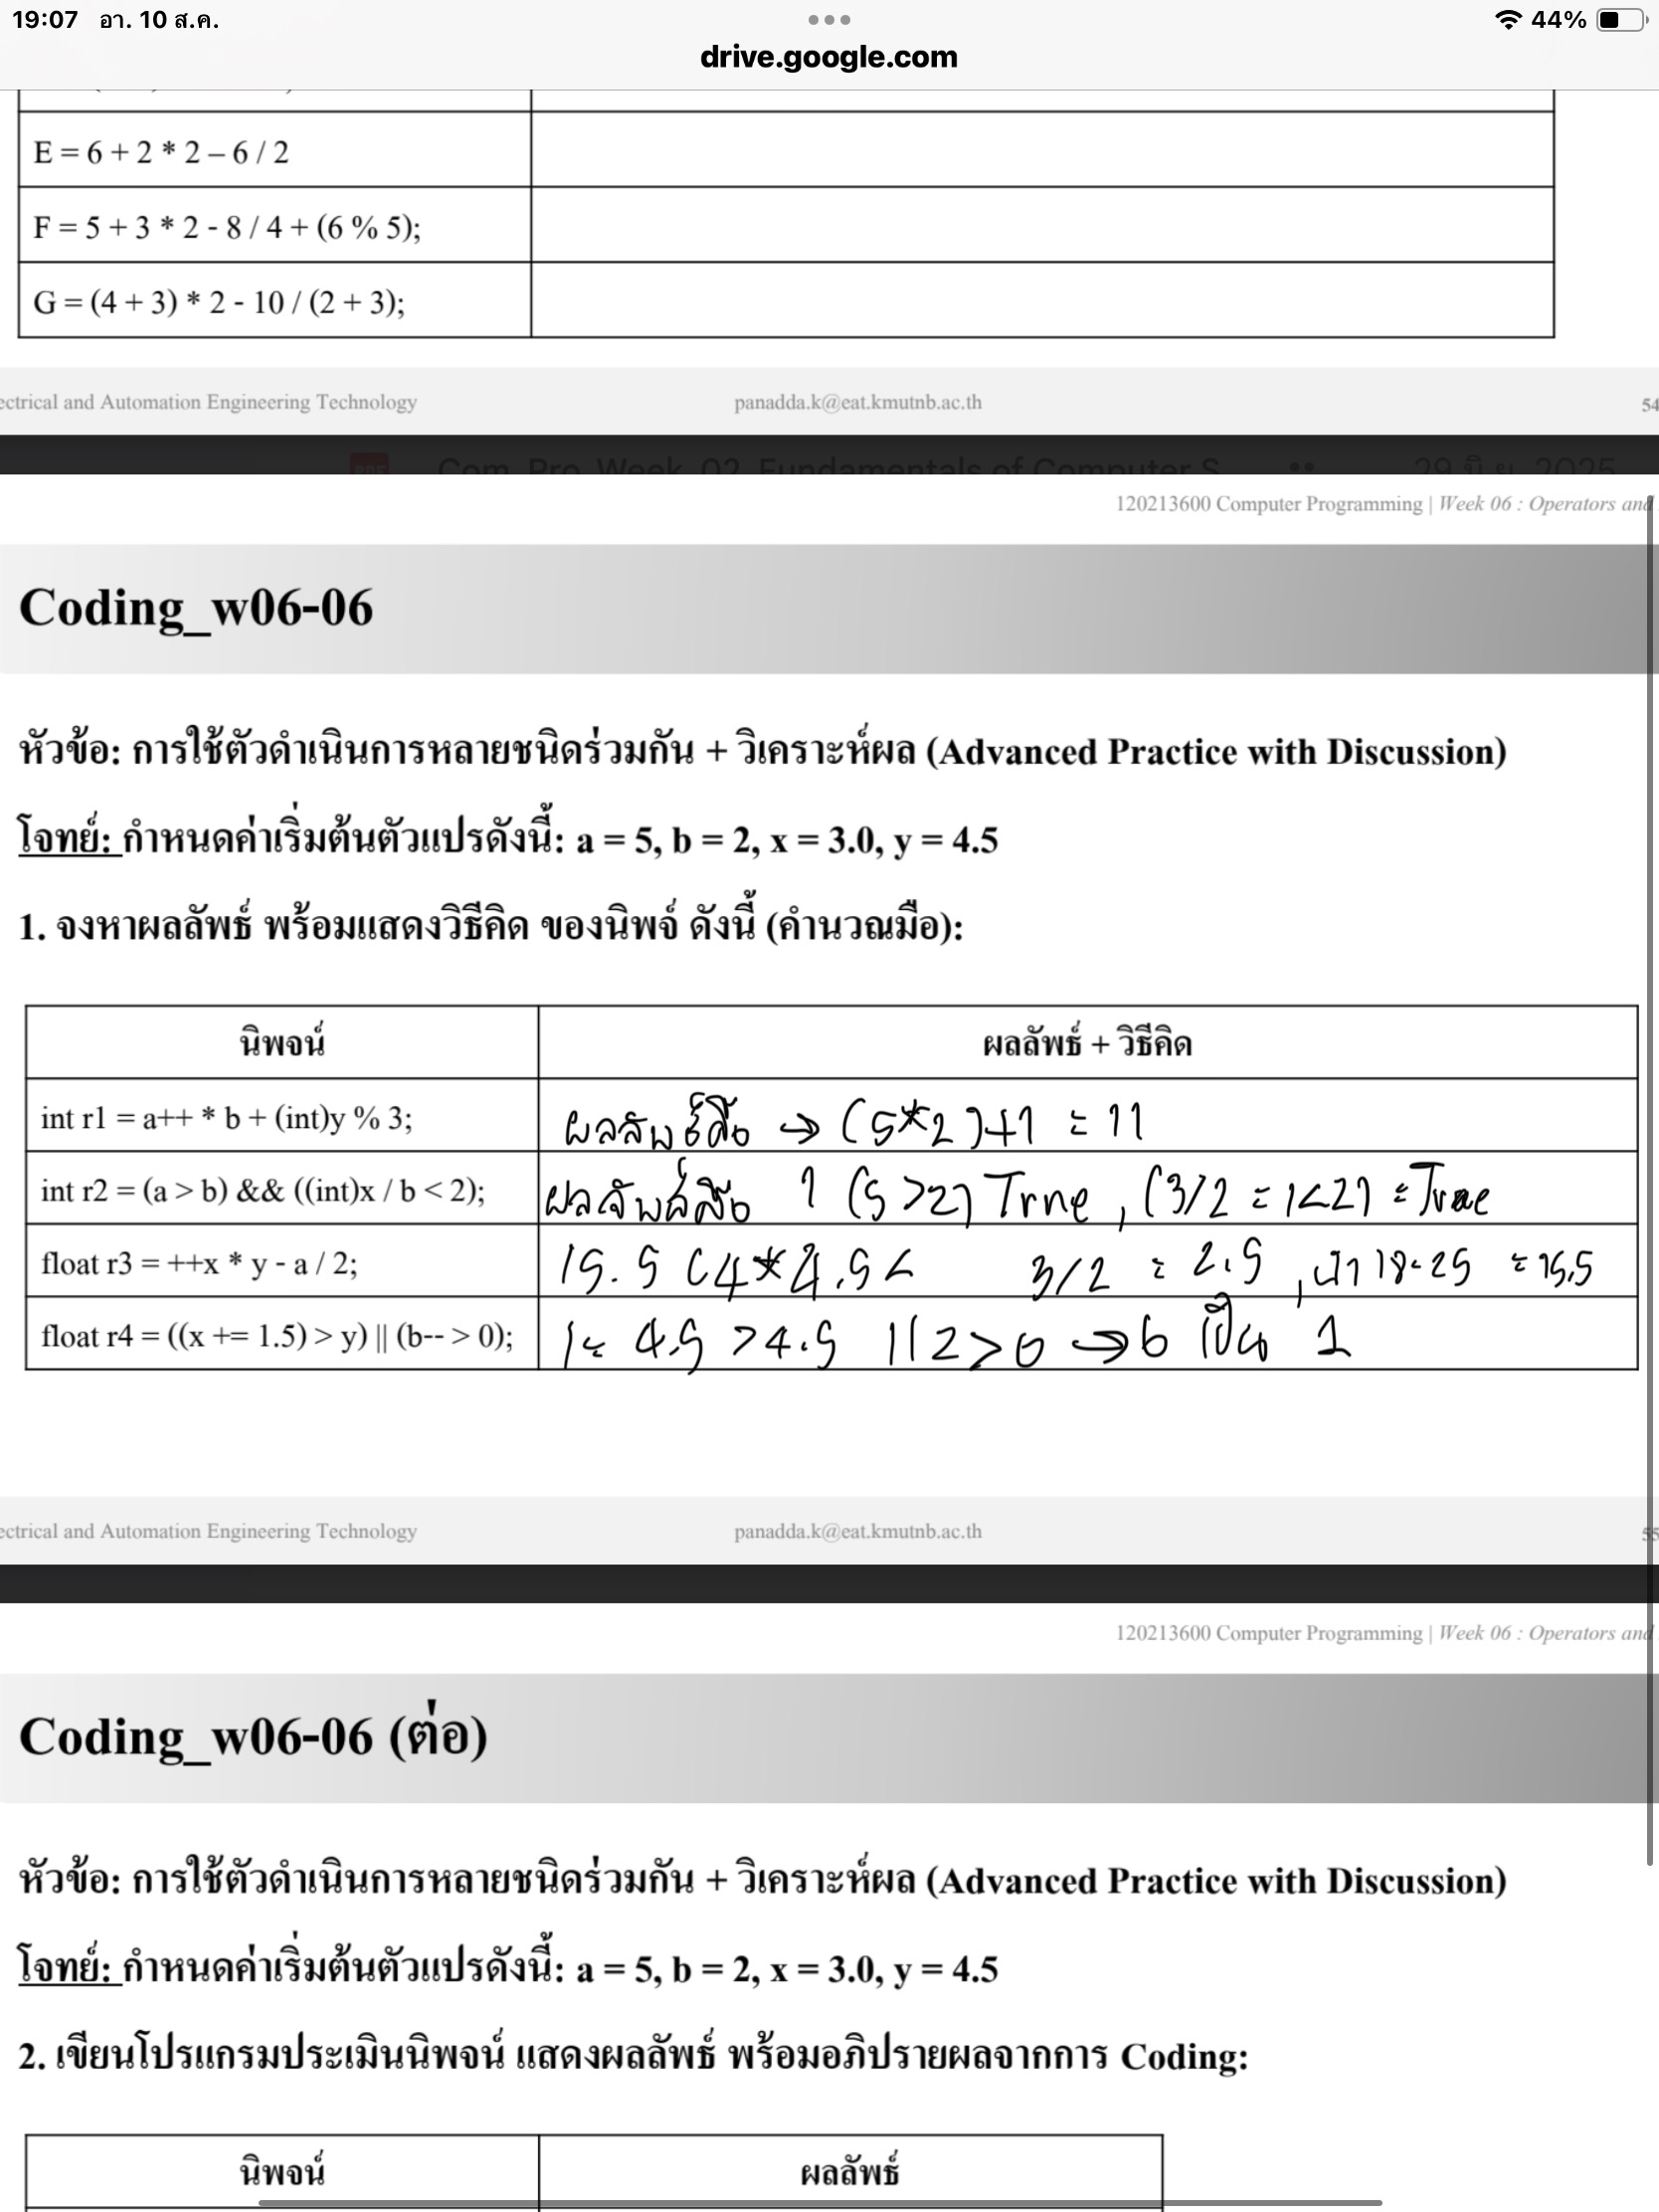 19:07 อา. 10 ส.ค.
44%
drive.google.com
E = 6 + 2 * 2 – 6 / 2
F = 5 + 3 * 2 - 8 / 4 + (6 % 5);
G = (4 + 3) * 2 - 10 / (2 + 3);
ectrical and Automation Engineering Technology panadda.k@eat.kmutnb.ac.th 54
Com_Pro_Week_02_Fundamentals of Computer S 29 มิ.ย. 2025
120213600 Computer Programming | Week 06 : Operators and
Coding_w06-06
หัวข้อ: การใช้ตัวดำเนินการหลายชนิดร่วมกัน + วิเคราะห์ผล (Advanced Practice with Discussion)
โจทย์: กำหนดค่าเริ่มต้นตัวแปรดังนี้: a = 5, b = 2, x = 3.0, y = 4.5
1. จงหาผลลัพธ์ พร้อมแสดงวิธีคิด ของนิพจ์ ดังนี้ (คำนวณมือ):
นิพจน์ ผลลัพธ์ + วิธีคิด
int r1 = a++ * b + (int)y % 3; ผลลัพธ์คือ → (5*2)+1 = 11
int r2 = (a > b) && ((int)x / b < 2); ผลลัพธ์คือ 1 (5 >2) True , (3/2 = 1<2) = True
float r3 = ++x * y - a / 2; 15.5 (4*4.5 3/2 = 2.5 , = 15.5
float r4 = ((x += 1.5) > y) || (b-- > 0); 1 = 4.5 >4.5 || 2>0 → b เป็น 1
ectrical and Automation Engineering Technology panadda.k@eat.kmutnb.ac.th 55
120213600 Computer Programming | Week 06 : Operators and
Coding_w06-06 (ต่อ)
หัวข้อ: การใช้ตัวดำเนินการหลายชนิดร่วมกัน + วิเคราะห์ผล (Advanced Practice with Discussion)
โจทย์: กำหนดค่าเริ่มต้นตัวแปรดังนี้: a = 5, b = 2, x = 3.0, y = 4.5
2. เขียนโปรแกรมประเมินนิพจน์ แสดงผลลัพธ์ พร้อมอภิปรายผลจากการ Coding:
นิพจน์ ผลลัพธ์